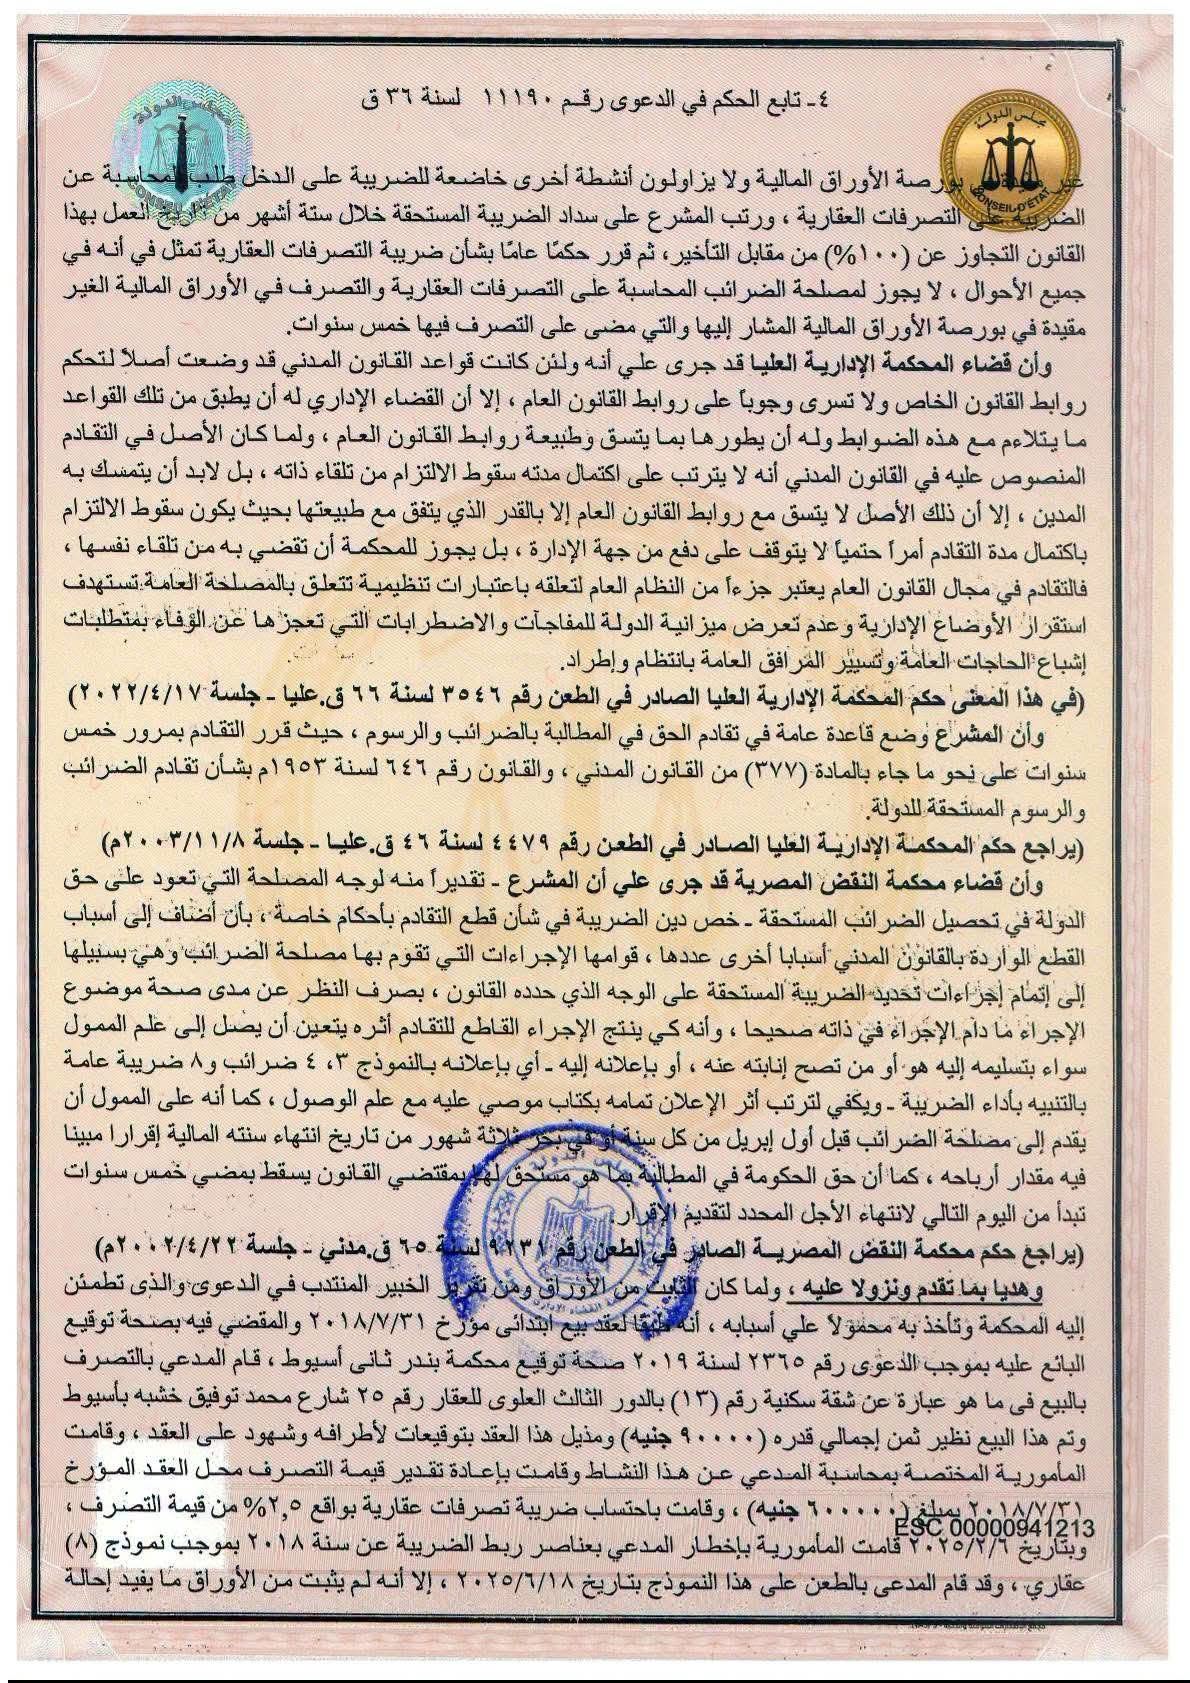 ٤- تابع الحكم في الدعوى رقم ١١١٩٠ لسنة ٣٦ ق
مجلس الدولة
CONSEIL D'ETAT
مجلس الدولة
CONSEIL D'ÉTAT
بورصة الأوراق المالية ولا يزاولون أنشطة أخرى خاضعة للضريبة على الدخل طلب المحاسبة عن
الضريبة على التصرفات العقارية ، ورتب المشرع على سداد الضريبة المستحقة خلال ستة أشهر من تاريخ العمل بهذا
القانون التجاوز عن (١٠٠%) من مقابل التأخير، ثم قرر حكمًا عامًا بشأن ضريبة التصرفات العقارية تمثل في أنه في
جميع الأحوال ، لا يجوز لمصلحة الضرائب المحاسبة على التصرفات العقارية والتصرف في الأوراق المالية الغير
مقيدة في بورصة الأوراق المالية المشار إليها والتي مضى على التصرف فيها خمس سنوات.
وأن قضاء المحكمة الإدارية العليا قد جرى علي أنه ولئن كانت قواعد القانون المدني قد وضعت أصلاً لتحكم
روابط القانون الخاص ولا تسرى وجوباً على روابط القانون العام ، إلا أن القضاء الإداري له أن يطبق من تلك القواعد
ما يتلاءم مع هذه الضوابط وله أن يطورها بما يتسق وطبيعة روابط القانون العام ، ولما كان الأصل في التقادم
المنصوص عليه في القانون المدني أنه لا يترتب على اكتمال مدته سقوط الالتزام من تلقاء ذاته ، بل لابد أن يتمسك به
المدين ، إلا أن ذلك الأصل لا يتسق مع روابط القانون العام إلا بالقدر الذي يتفق مع طبيعتها بحيث يكون سقوط الالتزام
باكتمال مدة التقادم أمراً حتمياً لا يتوقف على دفع من جهة الإدارة ، بل يجوز للمحكمة أن تقضي به من تلقاء نفسها ،
فالتقادم في مجال القانون العام يعتبر جزءاً من النظام العام لتعلقه باعتبارات تنظيمية تتعلق بالمصلحة العامة تستهدف
استقرار الأوضاع الإدارية وعدم تعرض ميزانية الدولة للمفاجآت والاضطرابات التي تعجزها عن الوفاء بمتطلبات
إشباع الحاجات العامة وتسيير المرافق العامة بانتظام وإطراد.
(في هذا المعنى حكم المحكمة الإدارية العليا الصادر في الطعن رقم ٣٥٤٦ لسنة ٦٦ ق.عليا - جلسة ٢٠٢٢/٤/١٧)
وأن المشرع وضع قاعدة عامة في تقادم الحق في المطالبة بالضرائب والرسوم ، حيث قرر التقادم بمرور خمس
سنوات على نحو ما جاء بالمادة (٣٧٧) من القانون المدني ، والقانون رقم ٦٤٦ لسنة ١٩٥٣م بشأن تقادم الضرائب
والرسوم المستحقة للدولة.
(يراجع حكم المحكمة الإدارية العليا الصادر في الطعن رقم ٤٤٧٩ لسنة ٤٦ ق.عليا - جلسة ٢٠٠٣/١١/٨م)
وأن قضاء محكمة النقض المصرية قد جرى علي أن المشرع - تقديراً منه لوجه المصلحة التي تعود على حق
الدولة في تحصيل الضرائب المستحقة - خص دين الضريبة في شأن قطع التقادم بأحكام خاصة ، بأن أضاف إلى أسباب
القطع الواردة بالقانون المدني أسبابا أخرى عددها ، قوامها الإجراءات التي تقوم بها مصلحة الضرائب وهي بسبيلها
إلى إتمام إجراءات تحديد الضريبة المستحقة على الوجه الذي حدده القانون ، بصرف النظر عن مدى صحة موضوع
الإجراء ما دام الإجراء في ذاته صحيحا ، وأنه كي ينتج الإجراء القاطع للتقادم أثره يتعين أن يصل إلى علم الممول
سواء بتسليمه إليه هو أو من تصح إنابته عنه ، أو بإعلانه إليه - أي بإعلانه بالنموذج ٣، ٤ ضرائب و٨ ضريبة عامة
بالتنبيه بأداء الضريبة - ويكفي لترتب أثر الإعلان تمامه بكتاب موصي عليه مع علم الوصول ، كما أنه على الممول أن
يقدم إلى مصلحة الضرائب قبل أول إبريل من كل سنة أو في بحر ثلاثة شهور من تاريخ انتهاء سنته المالية إقرارا مبينا
فيه مقدار أرباحه ، كما أن حق الحكومة في المطالبة بما هو مستحق لها بمقتضي القانون يسقط بمضي خمس سنوات
تبدأ من اليوم التالي لانتهاء الأجل المحدد لتقديم الإقرار.
(يراجع حكم محكمة النقض المصرية الصادر في الطعن رقم ٩٢٣١ لسنة ٦٥ ق.مدني - جلسة ٢٠٠٢/٤/٢٢م)
وهديا بما تقدم ونزولا عليه ، ولما كان الثابت من الأوراق ومن تقرير الخبير المنتدب في الدعوى والذى تطمئن
إليه المحكمة وتأخذ به محمولاً علي أسبابه ، أنه طبقًا لعقد بيع ابتدائى مؤرخ ٢٠١٨/٧/٣١ والمقضي فيه بصحة توقيع
البائع عليه بموجب الدعوى رقم ٢٣٦٥ لسنة ٢٠١٩ صحة توقيع محكمة بندر ثانى أسيوط ، قام المدعي بالتصرف
بالبيع فى ما هو عبارة عن شقة سكنية رقم (١٣) بالدور الثالث العلوى للعقار رقم ٢٥ شارع محمد توفيق خشبه بأسيوط
وتم هذا البيع نظير ثمن إجمالي قدره (٩٠٠٠٠ جنيه) ومذيل هذا العقد بتوقيعات لأطرافه وشهود على العقد ، وقامت
المأمورية المختصة بمحاسبة المدعي عن هذا النشاط وقامت بإعادة تقدير قيمة التصرف محل العقد المؤرخ
٢٠١٨/٧/٣١ بمبلغ (٦٠٠٠٠٠ جنيه) ، وقامت باحتساب ضريبة تصرفات عقارية بواقع ٢,٥% من قيمة التصرف ،
ESC 00000941213
وبتاريخ ٢٠٢٥/٢/٦ قامت المأمورية بإخطار المدعي بعناصر ربط الضريبة عن سنة ٢٠١٨ بموجب نموذج (٨)
عقاري ، وقد قام المدعى بالطعن على هذا النموذج بتاريخ ٢٠٢٥/٦/١٨ ، إلا أنه لم يثبت من الأوراق ما يفيد إحالة